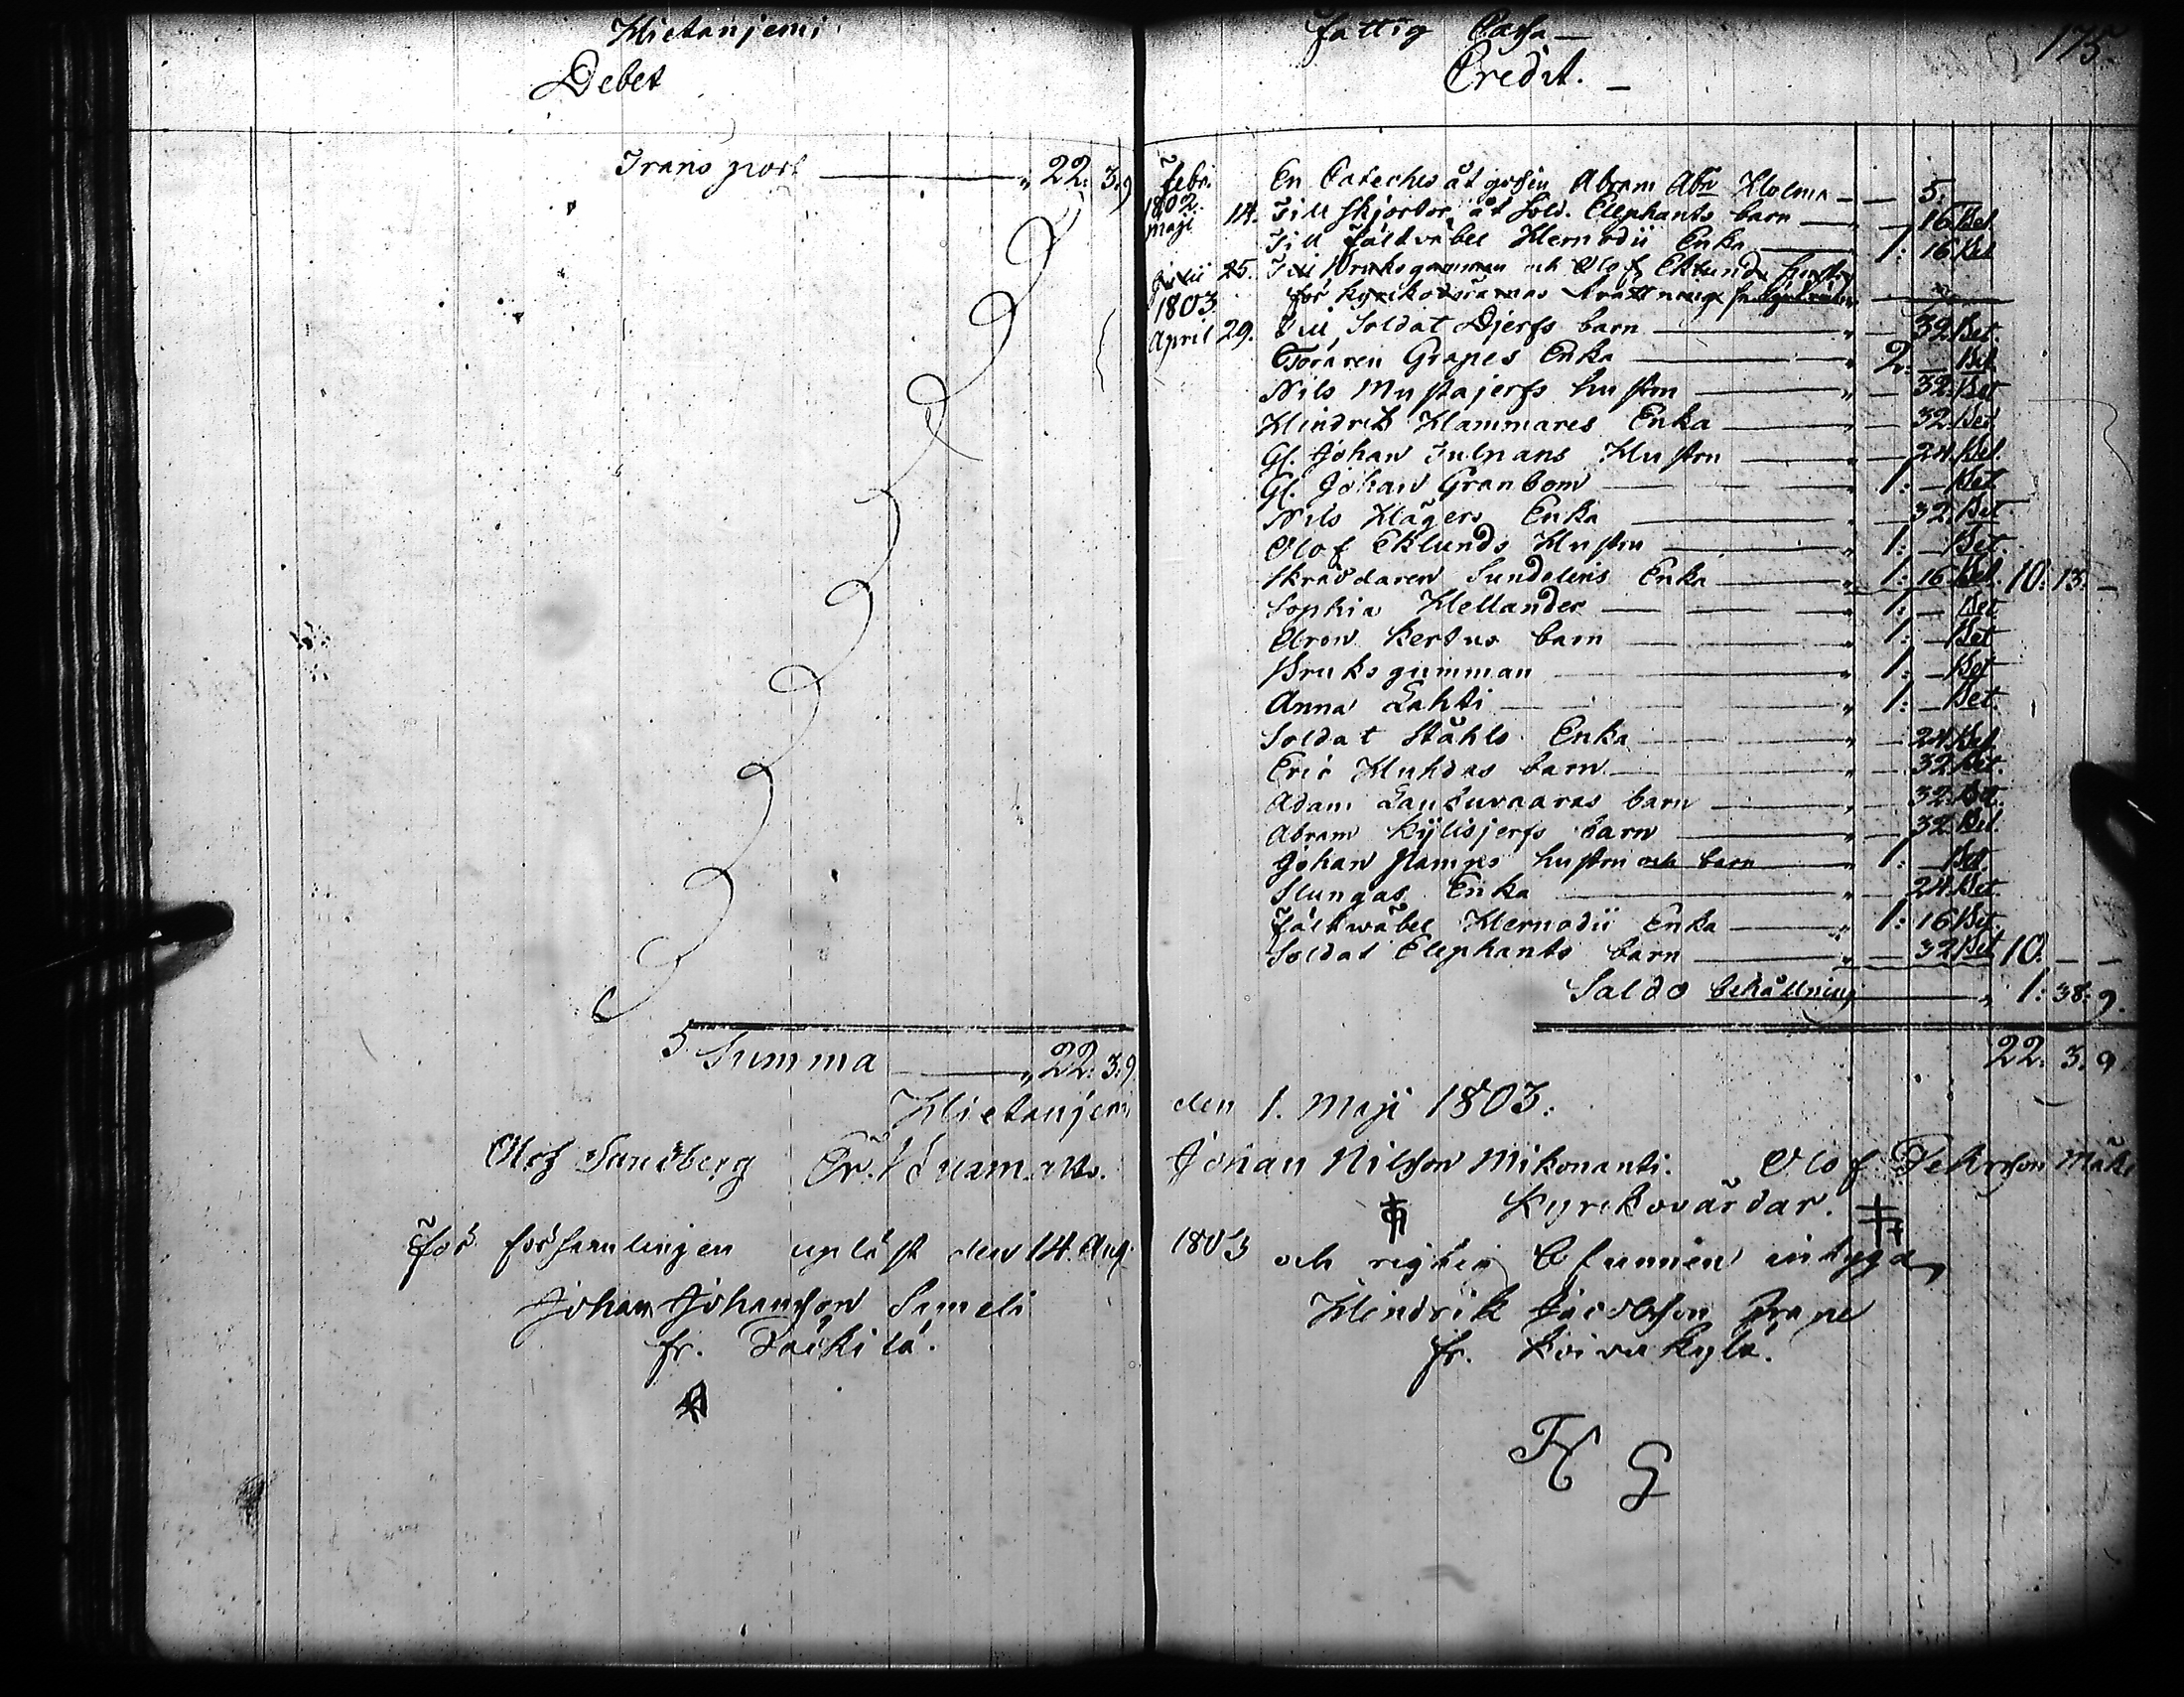 Hietaniemi
Debet
Transport — " 22: 3. 9
Summa — " 22: 3. 9
Hietaniemi
Olof Sundberg
för församlingen uplåst den 14. Aug.
Johan Johansson Sameli
fr. Päckilä.
Fattig Cassa —
175.
Credit. —
Febr. 1802. En Cateches åt gossen Abram Abr Holma — — 5.
Maji 14. Till skjortor åt Sold. Elephants barn — — 16 Bet.
Till Fältväbel Hernodii Enka — 1: 16 Bet
Junii 25. Till Bruksgumman och Olof Eklunds hustru
1803. för kyrkovärarnas
April 29. Till Soldat Djerfs barn — " — 32 Bet.
Toraren Grapes Enka — " 2. — Bet.
Nils Mustajerfs hustru — " — 32. Bet
Hindrik Hammares Enka — " — 32. Bet.
Gl. Johan Tulpans Hustru — " — 24. Bet.
Gl. Johan Granbom — " 1: — Bet
Nils Hägers Enka — " — 32. Bet
Olof Eklunds Hustru — " 1: — Bet.
Skräddaren Sundelins Enka — " 1: 16 Bet. 10: 13. —
Sophia Hellander — " 1: — Bet
Aron Kertus barn — " 1: — Bet
Bruksgumman — " 1: — Bet
Anna Lahti — " 1: — Bet.
Soldat Ståhls Enka — " — 24. Bet
Eric Huhdas barn — " — 32. Bet.
Adam Lautuvaaras barn — " — 32. Bet.
Abram Kylisjerfs barn — " — 32 Bet.
Johan Stampes hustru och barn — " 1: — Bet
Slungas Enka — " — 24. Bet.
Fältwäbel Hernodii Enka — " 1: 16 Bet.
Soldat Elephants barn — " — 32 Bet 10. — —
Saldo behållning — " 1: 38: 9.
22: 3. 9
den 1. Maji 1803.
Johan Nilsson Mikonanti. Olof Pehrsson Mäki
Kyrkovärdar.
1803 och rigtig befunnen intyga
Hindrik Jacobsson Grape
fr. Koivukylä.
H G